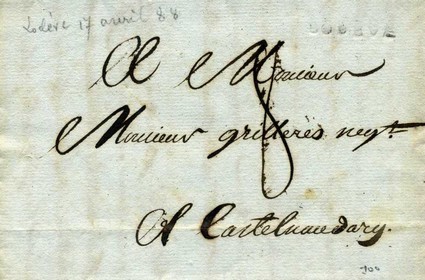 Lodève 17 avril 88
LODEVE
A Monsieur
8
Monsieur grilleres negt.
A Castelnaudary.